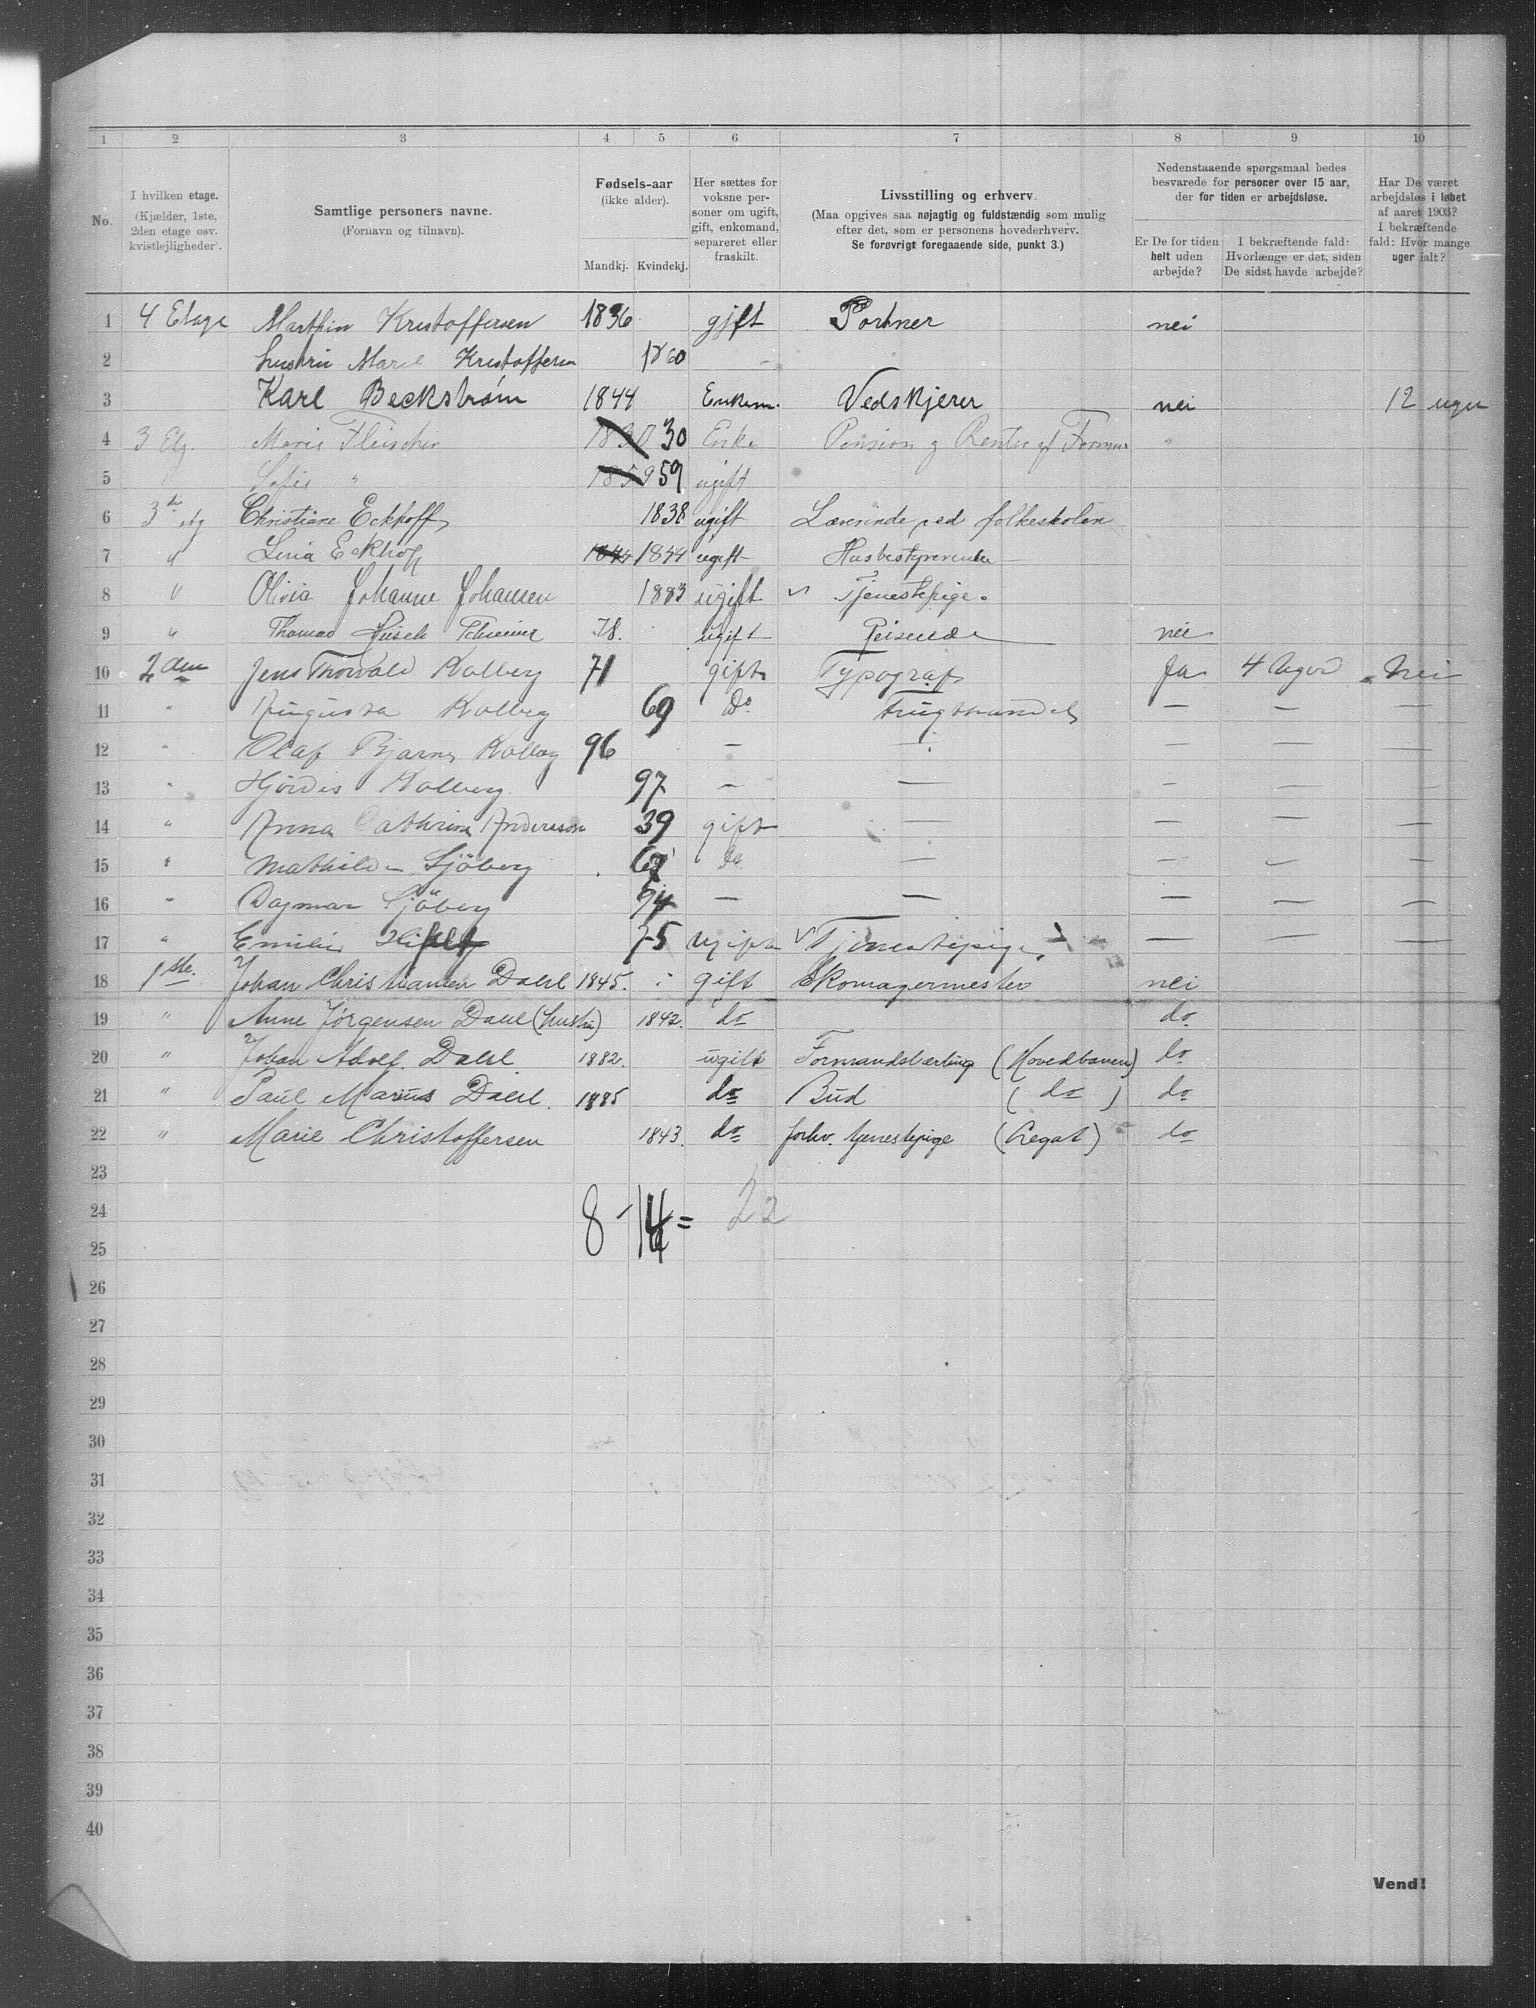 1 2 3 4 5 6 7 8 9 10
No.
I hvilken etage.
(Kjælder, 1ste,
2den etage osv.
kvistlejligheder).
Samtlige personers navne.
(Fornavn og tilnavn).
Fødsels-aar
(ikke alder).
Mandkj. Kvindekj.
Her sættes for
voksne per-
soner om ugift,
gift, enkemand,
separeret eller
fraskilt.
Livsstilling og erhverv.
(Maa opgives saa nøjagtig og fuldstændig som mulig
efter det, som er personens hovederhverv.
Se forøvrigt foregaaende side, punkt 3.)
Nedenstaaende spørgsmaal bedes
besvarede for personer over 15 aar,
der for tiden er arbejdsløse.
Er De for tiden
helt uden
arbejde?
I bekræftende fald:
Hvorlænge er det, siden
De sidst havde arbejde?
Har De været
arbejdsløs i løbet
af aaret 1903?
I bekræftende
fald: Hvor mange
uger ialt?
1 4 Etage Marthin Kristoffersen 1836 gift Portner nei
2 hustru Marie Kristoffersen 1860 -
3 Karl Beckstrøm 1844 Enkem. Vedskjerer nei 12 uger
4 3 Etg. Marie Fleischer 1830 30 Enke Pension og Renter af Formue "
5 Sofie " 1859 59 ugift
6 3die etg Christiane Eckhoff 1838 ugift Lærerinde ved folkeskolen
7 " Lina Eckhoff 1844 1844 ugift Husbestyrerinde
8 " Olivia Johanne Johansen 1883 ugift Tjenestepige.
9 " Thomas 78. ugift Reisende nei
10 2den Jens Thorvald Kolberg 71 gift Typograf Ja 4 Uger Nei
11 " Augusta Kolberg 69 Do Frugthandel — — —
12 " Olaf Bjarne Kolberg 96 — — — — —
13 " Hjørdis Kolberg 97 — — — — —
14 " Anna Cathrine Anderson 39 gift — — — —
15 " Mathilde Sjöberg Do — — — —
16 " Dagmar Sjöberg 94 — — — — —
17 " Emilie 75 ugift Tjenestepige — — —
18 1ste. Johan Christiansen Dahl 1845. gift Skomagermester nei
19 " Anne Jørgensen Dahl (hustru) 1842. do do
20 " Johan Adolf Dahl 1882. ugift Formandslærling (Hovedbanen) do
21 " Paul Marius Dahl. 1885 do Bud ( do ) do
22 " Marie Christoffersen 1843. do forhv. tjenestepige (Legat) do
23
24 8 - 14 = 22
25
26
27
28
29
30
31
32
33
34
35
36
37
38
39
40
Vend!